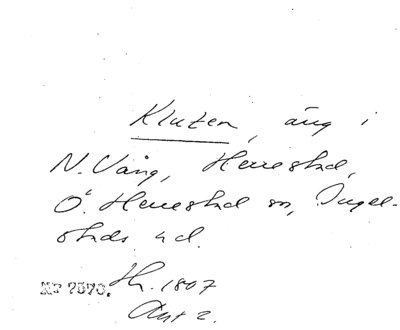 Kluten, äng i
N. Vång, Herrestad,
Ö. Herrestad sn, Ingel-
stads hd.
NF 7070. Hr. 1807
Akt 2.